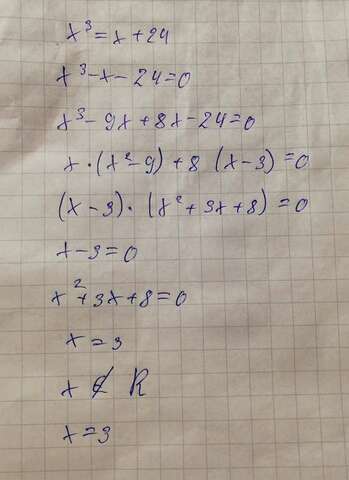 x³=x+24
x³-x-24=0
x³-9x+8x-24=0
x·(x²-9)+8(x-3)=0
(x-3)·(x²+3x+8)=0
x-3=0
x²+3x+8=0
x=3
x∉R
x=3